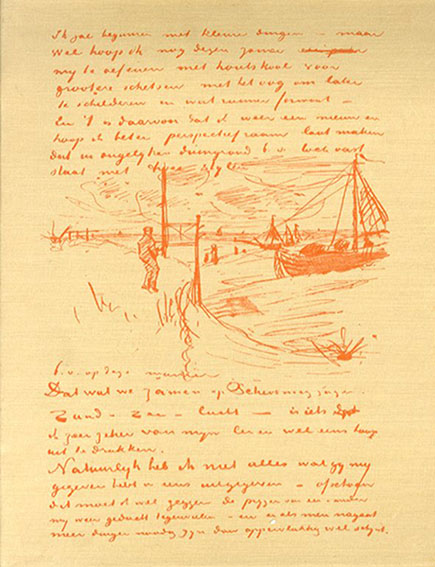 Ik zal beginnen met kleine dingen – maar
wel hoop ik nog dezen zomer
mij te oefenen met houtskool voor
grootere schetsen met het oog om later
te schilderen en wat ruimer formaat –
En 't is daarvoor dat ik weer een nieuw en
hoop ik beter perspectiefraam laat maken
dat in ongelijken duingrond b.v. vast
staat met twee
b.v. op deze manier
Dat wat we zamen op Scheveningen zagen
Zand – Zee – lucht – is iets dat
ik zeer zeker voor mijn wel eens hoop
uit te drukken.
Natuurlijk heb ik niet alles wat gij mij
gegeven hebt in eens uitgegeven – ofschoon
dat moet ik wel zeggen de prijzen van een & ander
mij weer geducht tegenvielen – en er als men nagaat
meer dingen noodig zijn dan oppervlakkig wel schijnt.